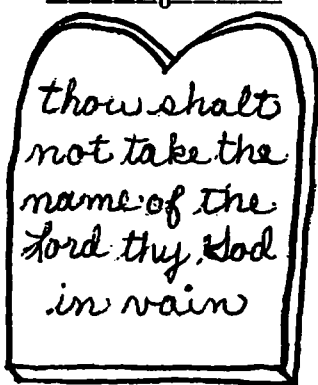 thou shalt
not take the
name of the
Lord thy God
in vain